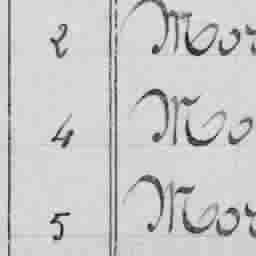 2 Mor
4 Mo
5 Mor